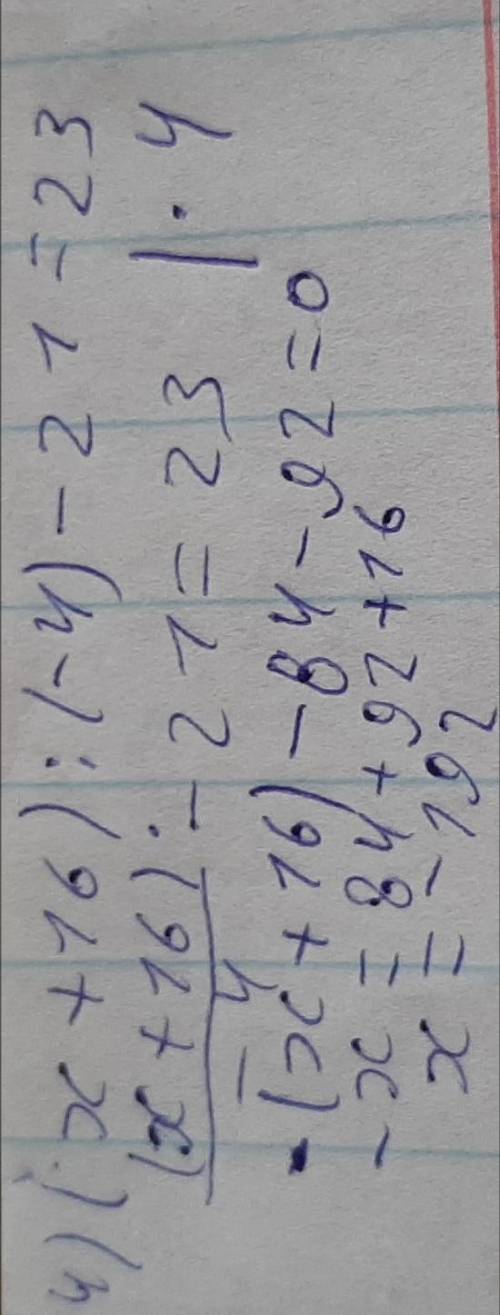 4) (x + 16) : (-4) - 21 = 23
(x + 16) / -4 - 21 = 23 | · 4
-(x + 16) - 84 - 92 = 0
-x = 84 + 92 + 16
x = -192